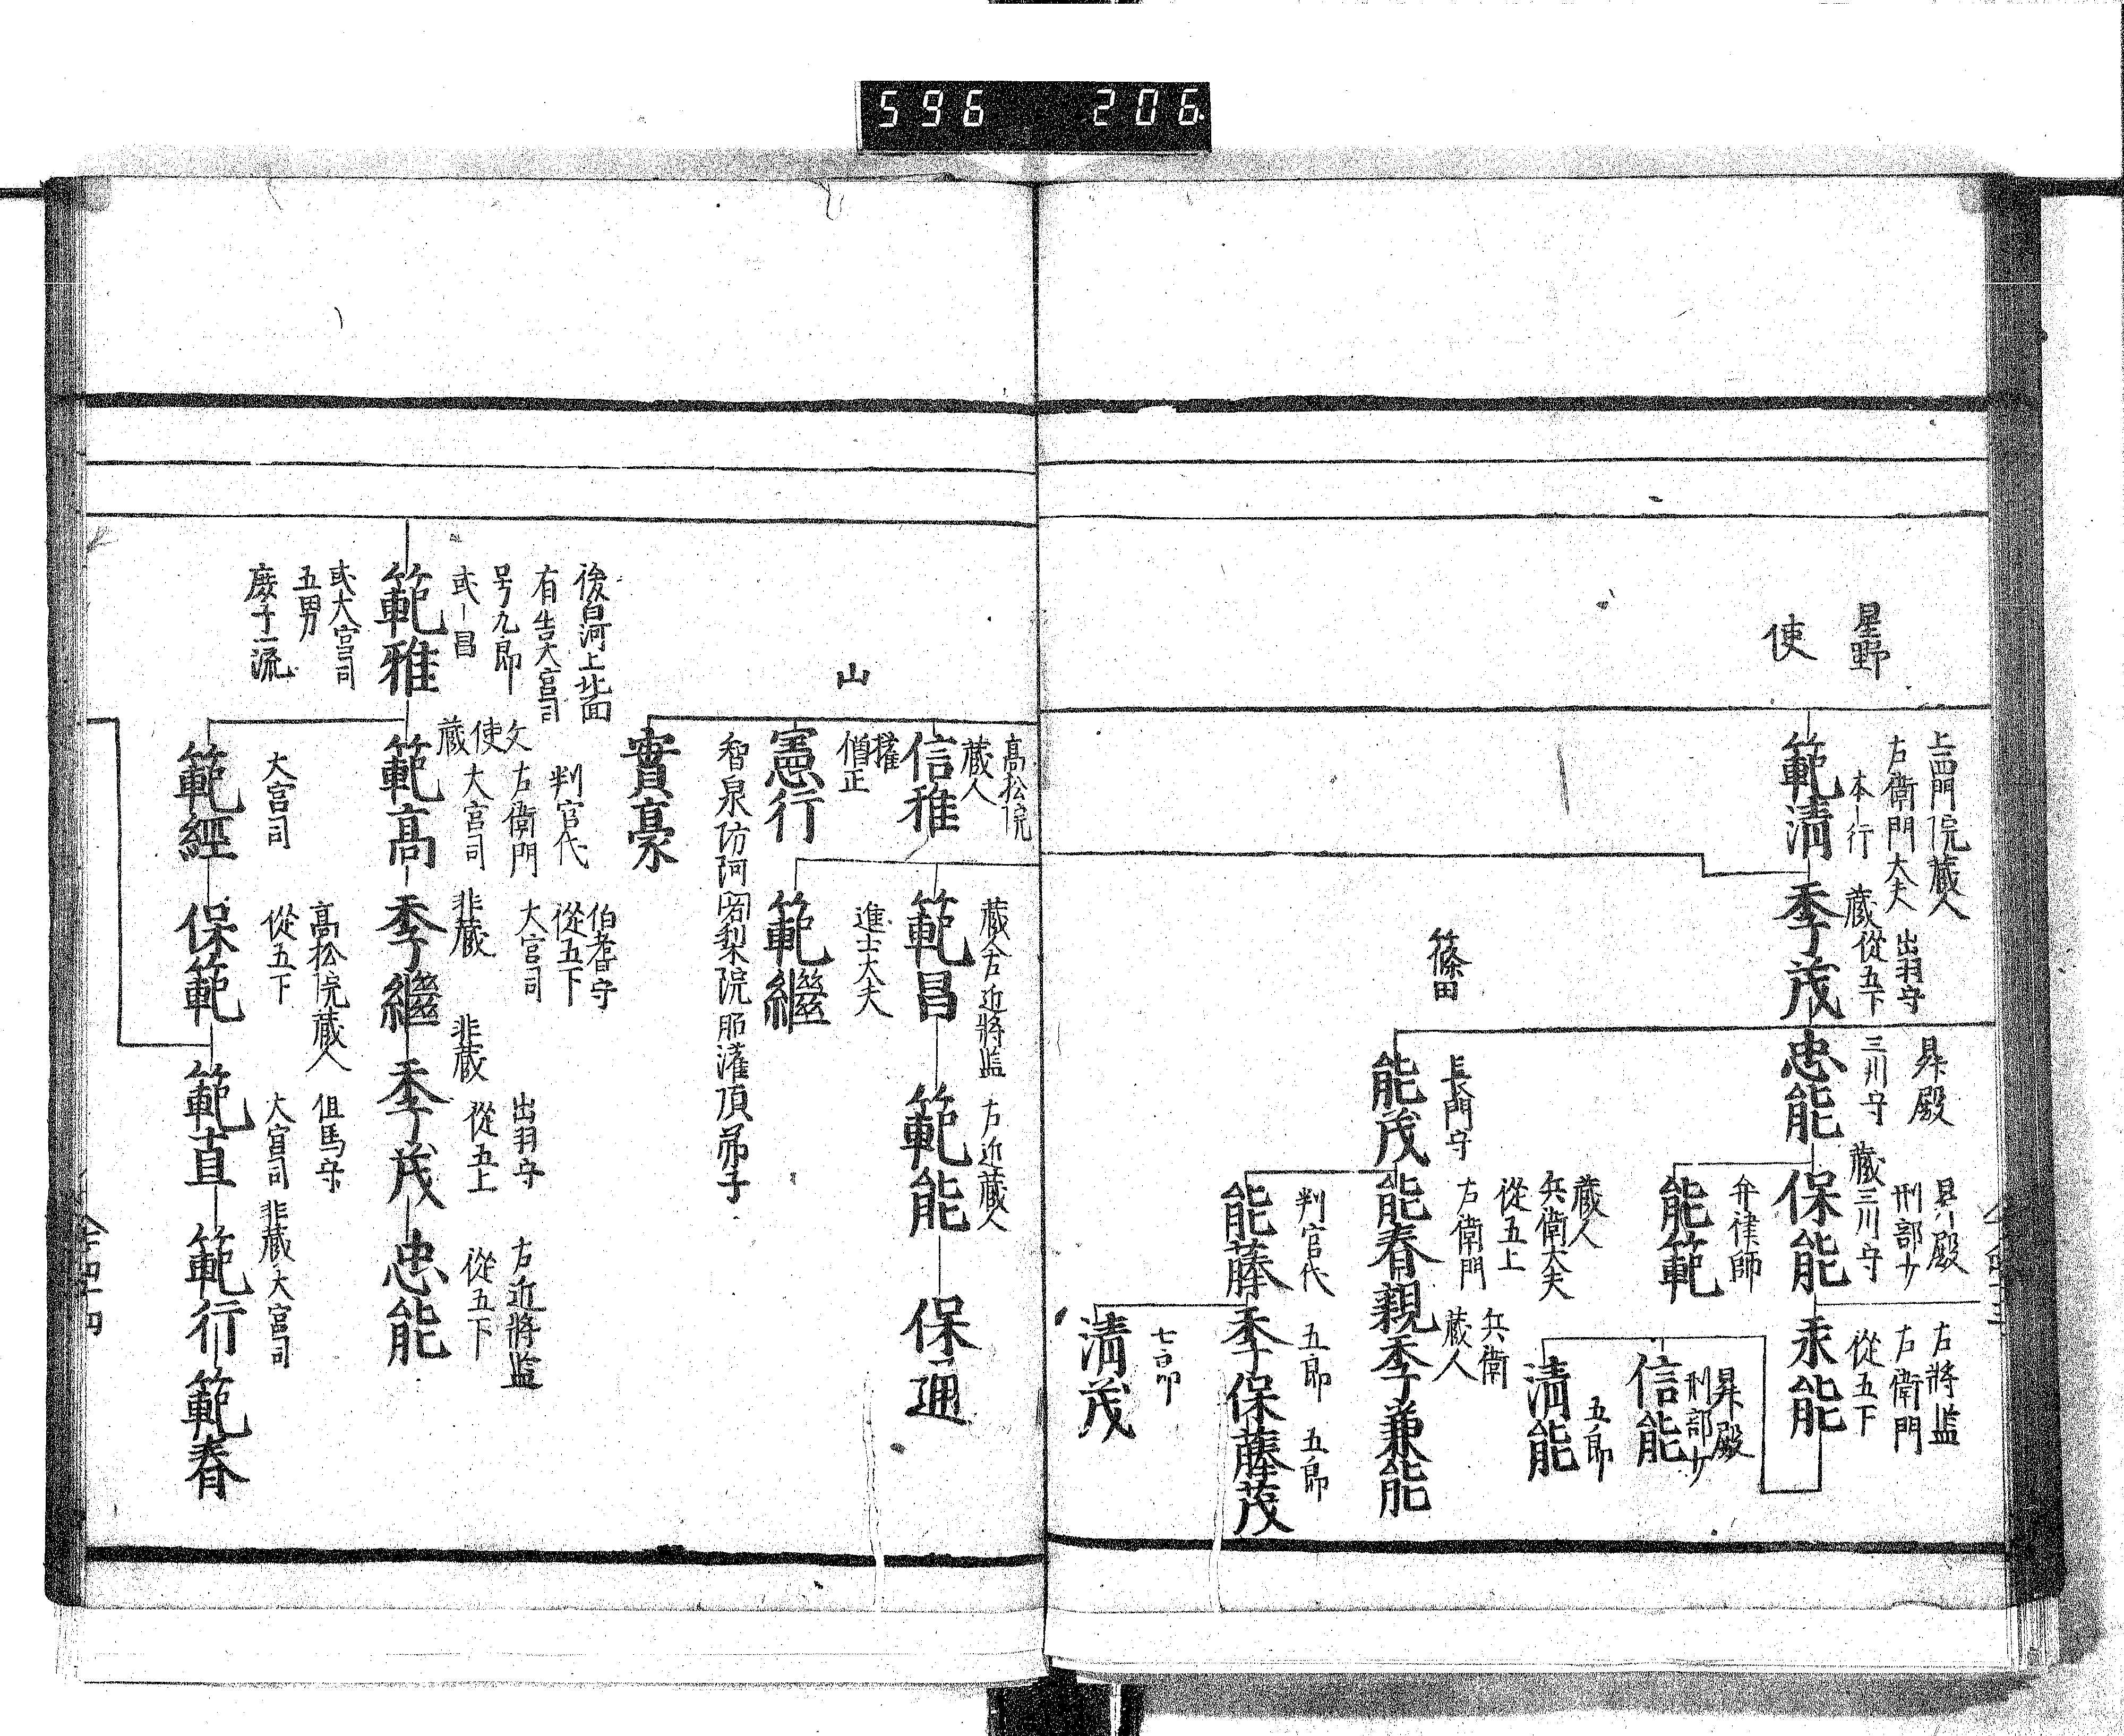 596 206
星野
使
上西門院蔵人
右衛門大夫
本一行
範清
蔵
出羽守
從五下
季茂
昇殿
三川守
忠能
蔵
昇殿
刑部少
三川守
保能
右將監
右衛門
從五下
永能
弁律師
能範
昇殿
刑部少
信能
五郎
清能
篠田
長門守
能茂
蔵人
兵衛大夫
從五上
右衛門
能春
兵衛
蔵人
親季
兼能
判官代
能藤
五郎
季保
五郎
藤茂
七郎
清茂
高松院
蔵人
信雅
蔵人右近將監
範昌
右近蔵人
範能
保通
進士大夫
範繼
山
權
僧正
憲行
智泉防阿闍梨院昭灌頂弟子
實豪
後白河上北面
有告大宮司
号九郎
或一昌
範雅
或大宮司
五男
庶子一流
文
使
蔵
判官代
右衛門
大宮司
範高
非蔵
伯耆守
從五下
大宮司
季繼
非蔵
出羽守
從五上
季茂
右近將監
從五下
忠能
大宮司
範經
高松院蔵人
從五下
保範
但馬守
大宮司
範直
非蔵
大宮司
範行
範春